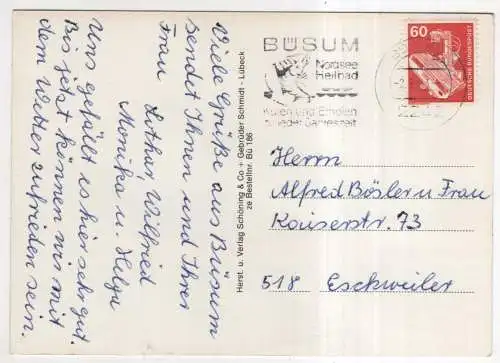 Viele Grüße aus Büsum
sendet Ihnen und Ihrer
Frau
Lothar Wilfried
Monika u. Helga
Uns gefällt es hier sehr gut.
Bis jetzt können wir mit
dem Wetter zufrieden sein.
Herst. u. Verlag Schöning & Co + Gebrüder Schmidt - Lübeck
ze Bestellnr. Bü 186
BÜSUM
Nordsee
Heilbad
Kuren und Erholen
zu jeder Jahreszeit
60
2242
Herrn
Alfred Bösler u Frau
Kaiserstr. 73
518 Eschweiler